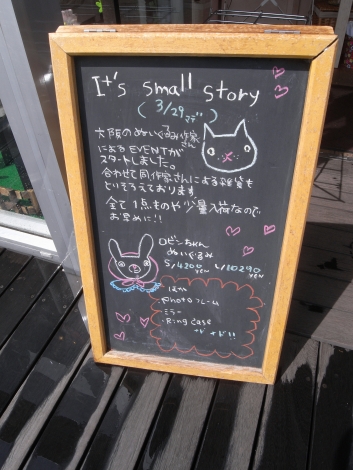 It's small story
(3/29マデ)
大阪のぬいぐるみ作家さん
によるEVENTが
スタートしました。
合わせて同作家さんによる雑貨も
とりそろえております
全て1点ものや少量入荷なので
お早めに!!
ロビンちゃん
ぬいぐるみ
S/4200YEN L/10290YEN
ほか
・Photoフレーム
・ミラー
・Ring case